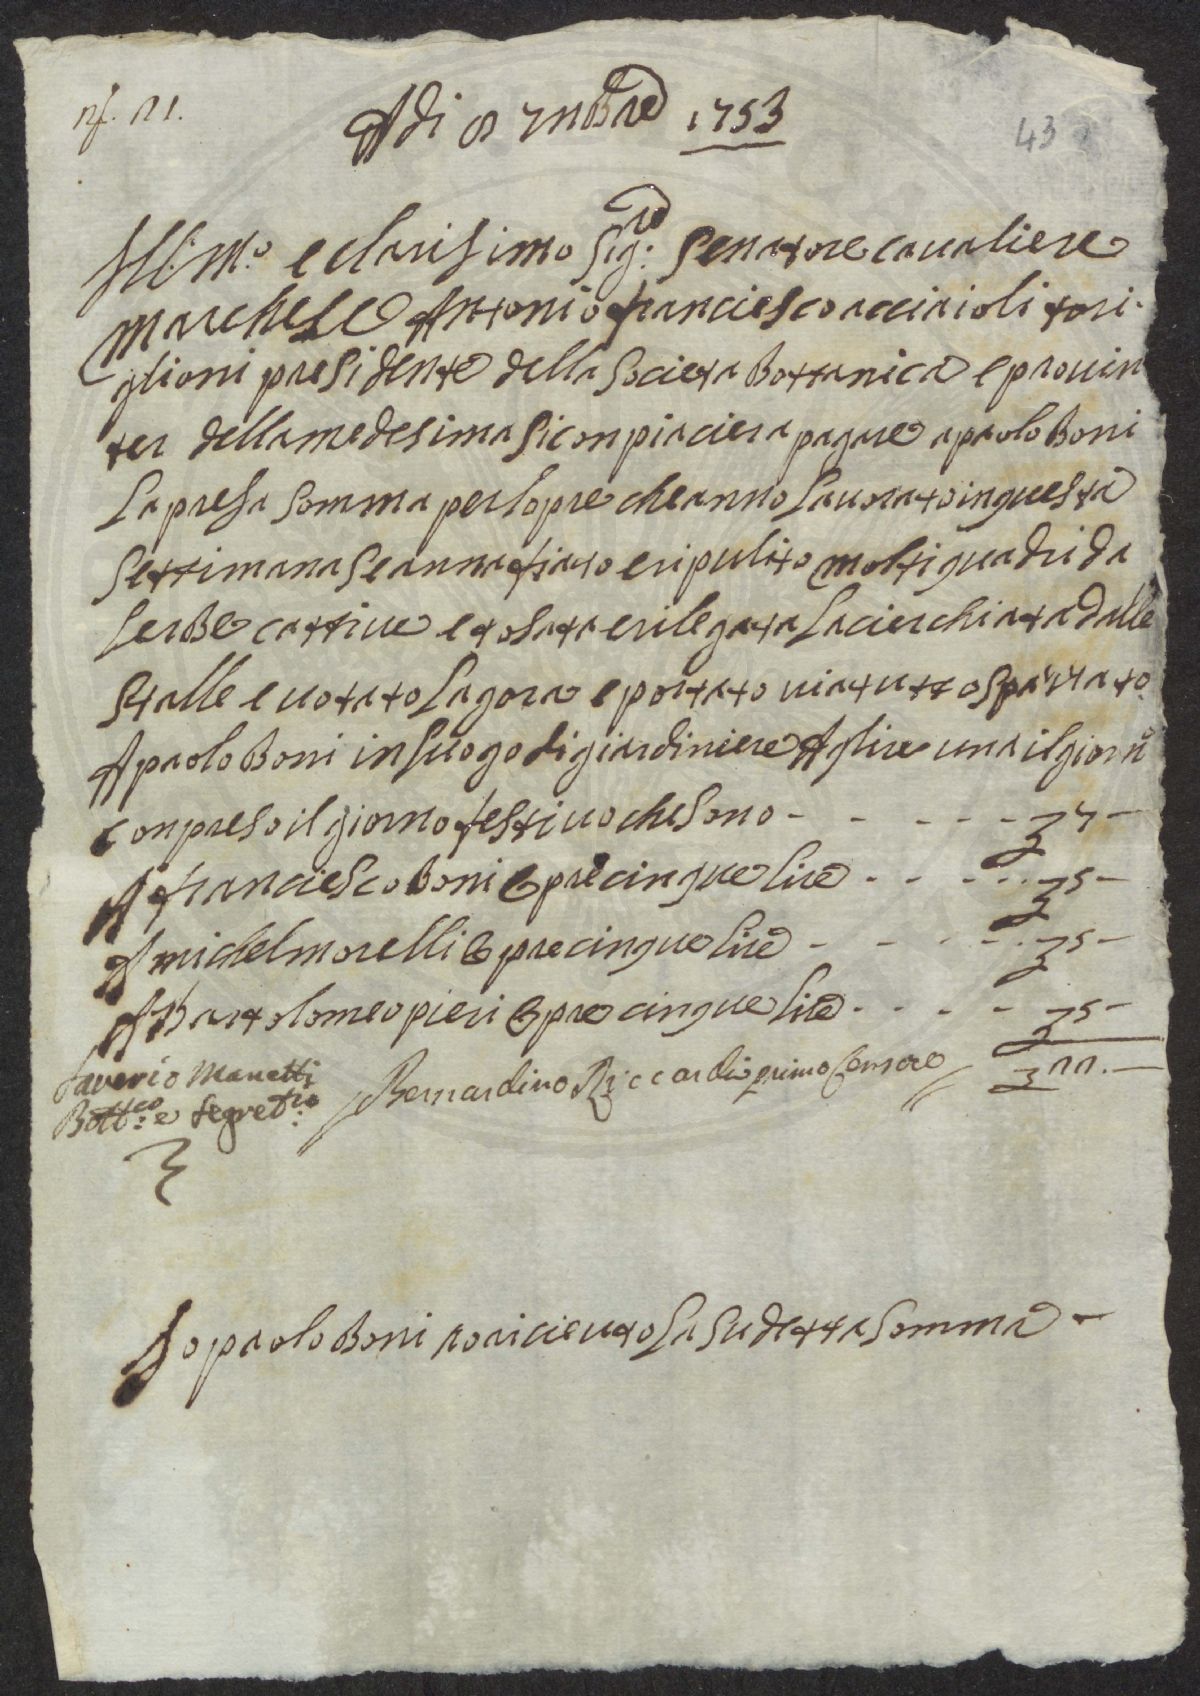 nf. 21.
43
Adi 8 7mBre 1753
Ill:mo e clarisimo Sig:re Senatore cavaliere
marchese Antonio franciesco acciaioli tori-
glioni presidente della Societa Bottanica e provin
ter della medesima Si conpiaciera pagare a paolo Boni
La presa Somma per lopre che anno Lavorato in questa
Settimana Se annafiato e ripulito molti quadri da
lerBe cattive e tosata e rilegata La cierchiata dalle
Stalle e votato La gora e portato via tutto spartato.
A paolo Boni in Luogo di giardiniere A lire una il giorno
conpreso il giorno festivo che Sono - - - - - - £ 7 -
A franciesco Boni opre cinque lire - - - - - £ 5 -
A michel morelli 6 pre cinque lire - - - - - £ 5 -
A Bartolomeo pieri 6 pre cinque lire - - - - - £ 5 -
£ 22. -
Saverio Manetti
Bott:co e Segret:rio
Bernardino Riccardi primo Censore
Io paolo Boni o ricieuto La Sudetta Somma -